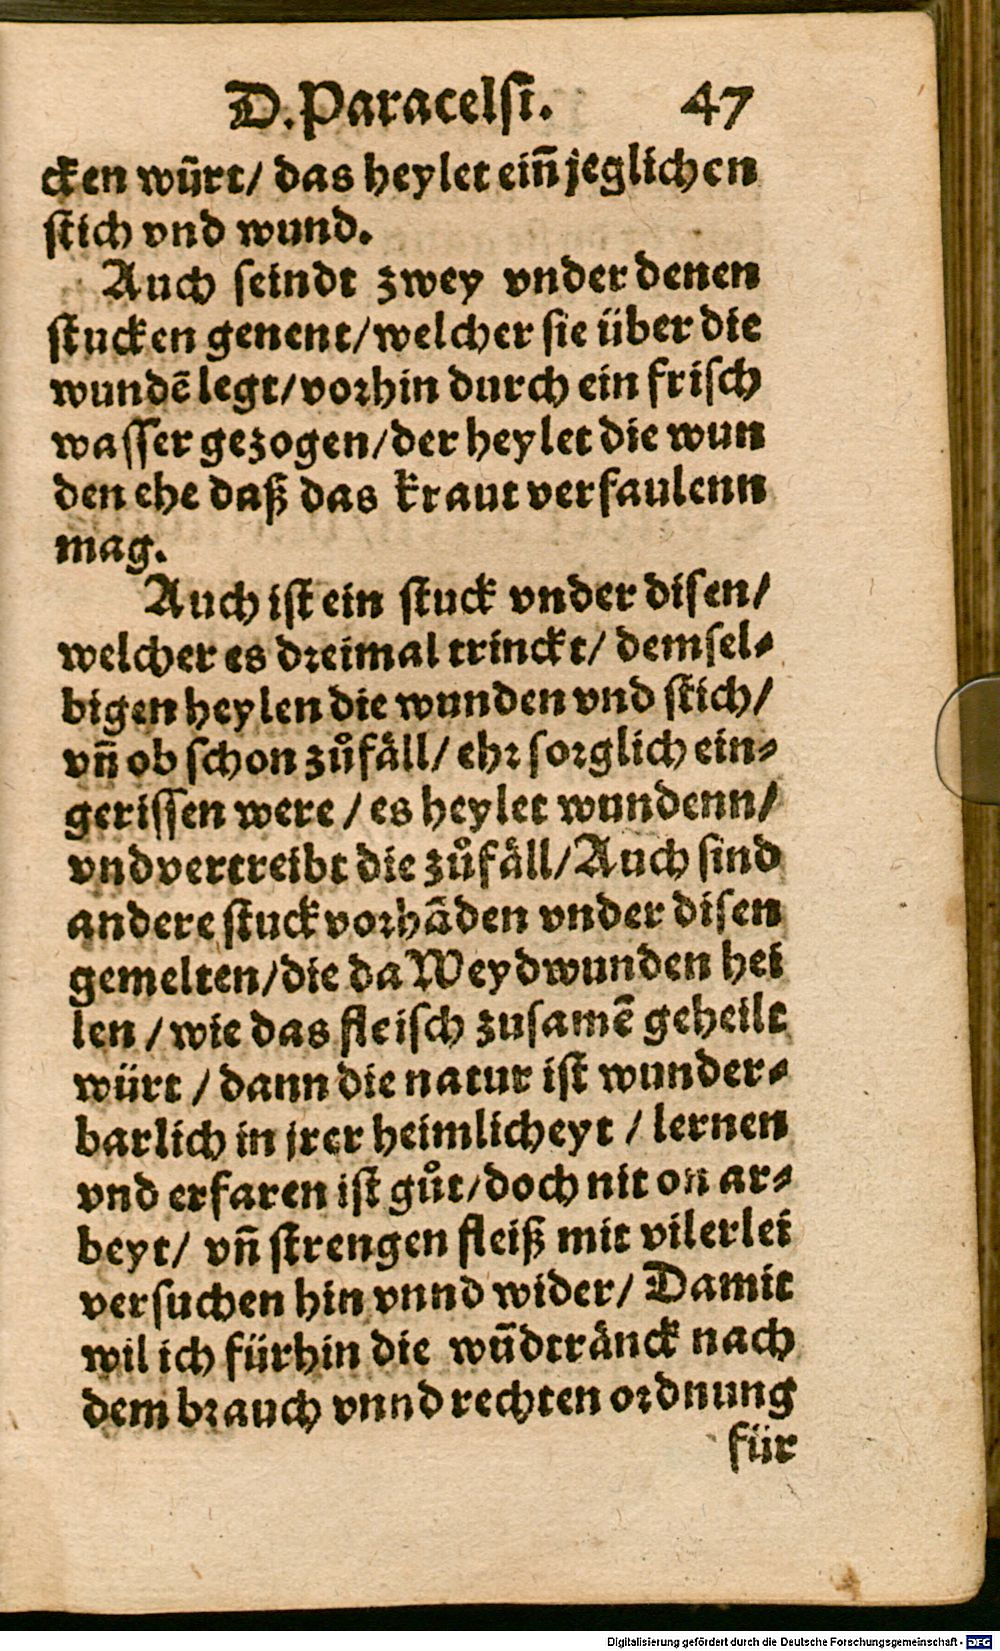 D. Paracelsi. 47
cken würt/ das heylet eiñ jeglichen
stich vnd wund.
Auch seindt zwey vnder denen
stucken genent/welcher sie über die
wundẽ legt/vorhin durch ein frisch
wasser gezogen/der heylet die wun
den ehe daß das kraut verfaulenn
mag.
Auch ist ein stuck vnder disen/
welcher es dreimal trinckt/ demsel-
bigen heylen die wunden vnd stich/
vñ ob schon zůfäll/ ehr sorglich ein-
gerissen were / es heylet wundenn/
vnd vertreibt die zůfäll/Auch sind
andere stuck vorhãden vnder disen
gemelten/die da Weydwunden hei
len / wie das fleisch zusamẽ geheilt
würt / dann die natur ist wunder-
barlich in jrer heimlicheyt / lernen
vnd erfaren ist gůt/doch nit on ar-
beyt/ vñ strengen fleiß mit vilerlei
versuchen hin vnnd wider/ Damit
wil ich fürhin die wũdtränck nach
dem brauch vnnd rechten ordnung
für
Digitalisierung gefördert durch die Deutsche Forschungsgemeinschaft - DFG